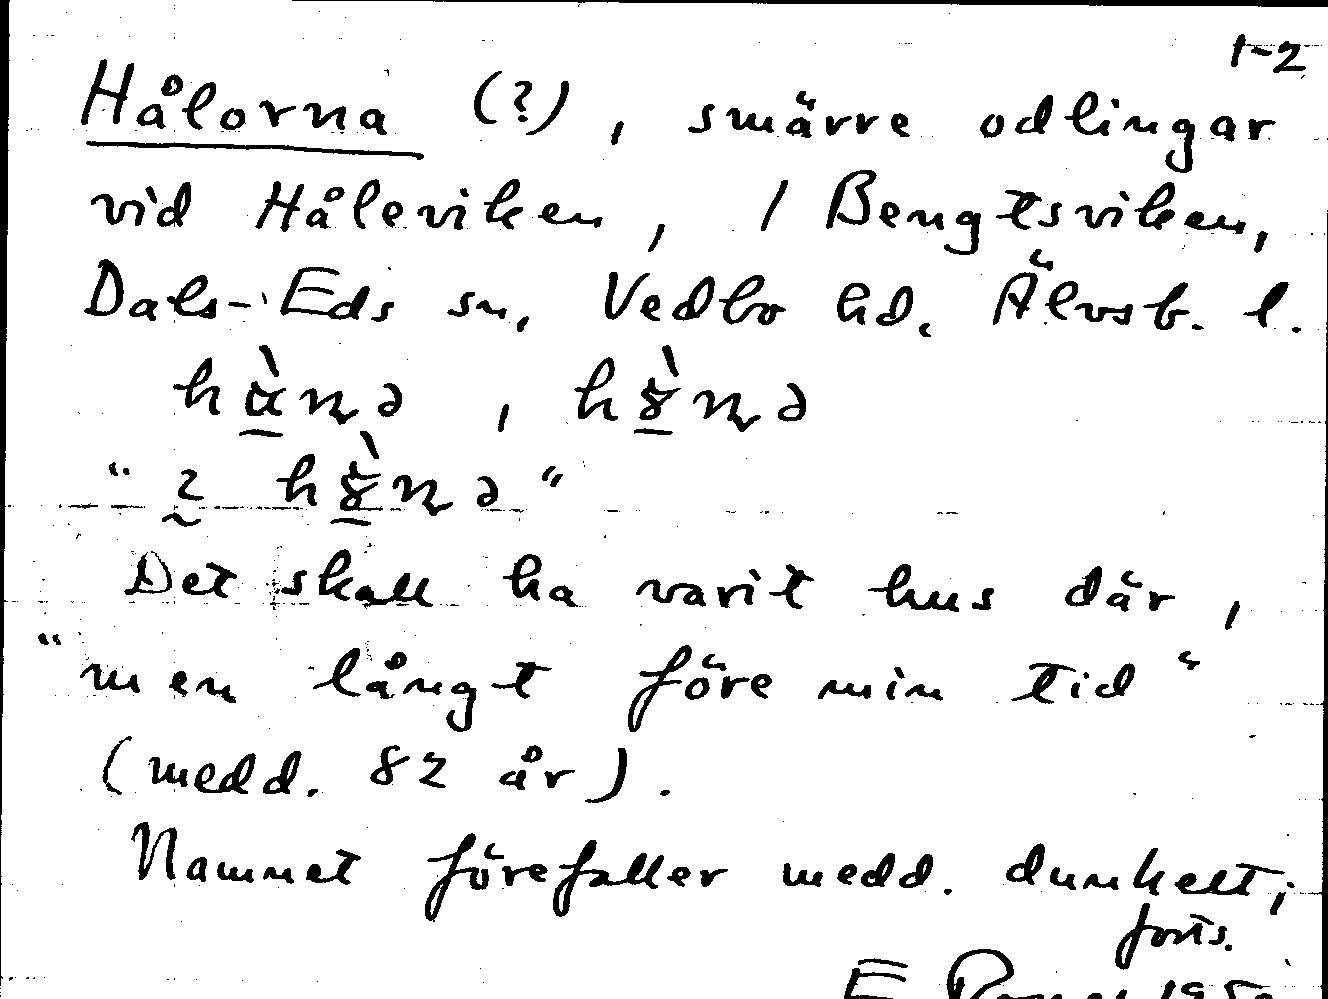 1-2
Hålorna (?), smärre odlingar
vid Håleviken, / Bengtsviken,
Dals-Eds sn, Vedbo hd. Älvsb. l.
Det skall ha varit hus där,
"men långt före min tid"
(medd. 82 år).
Namnet förefaller medd. dunkelt;
forts.
E